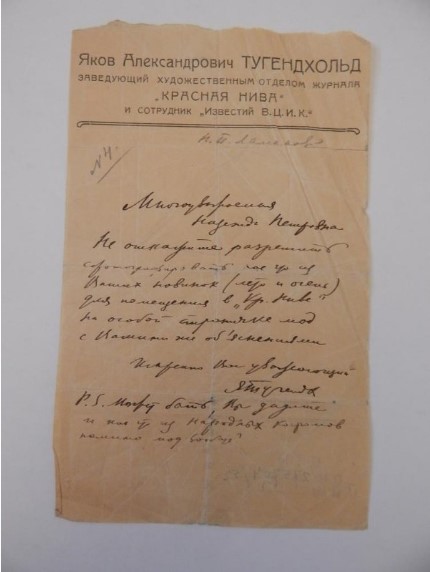 Яков Александрович ТУГЕНДХОЛЬД
ЗАВЕДУЮЩИЙ ХУДОЖЕСТВЕННЫМ ОТДЕЛОМ ЖУРНАЛА
„КРАСНАЯ НИВА“
И СОТРУДНИК „ИЗВЕСТИЙ В.Ц.И.К.“
Н. П. Ламановой
№4.
Многоуважаемая
Надежда Петровна
Не откажите разрешить
сфотографировать кое что из
Ваших новинок (лето и осень)
для помещения в „Кр. Ниве“
на особой странице мод
с Вашими же об'яснениями
Искренно Вас уважающий
ЯТугенд
P.S. Может быть, Вы дадите
и кое что из народных